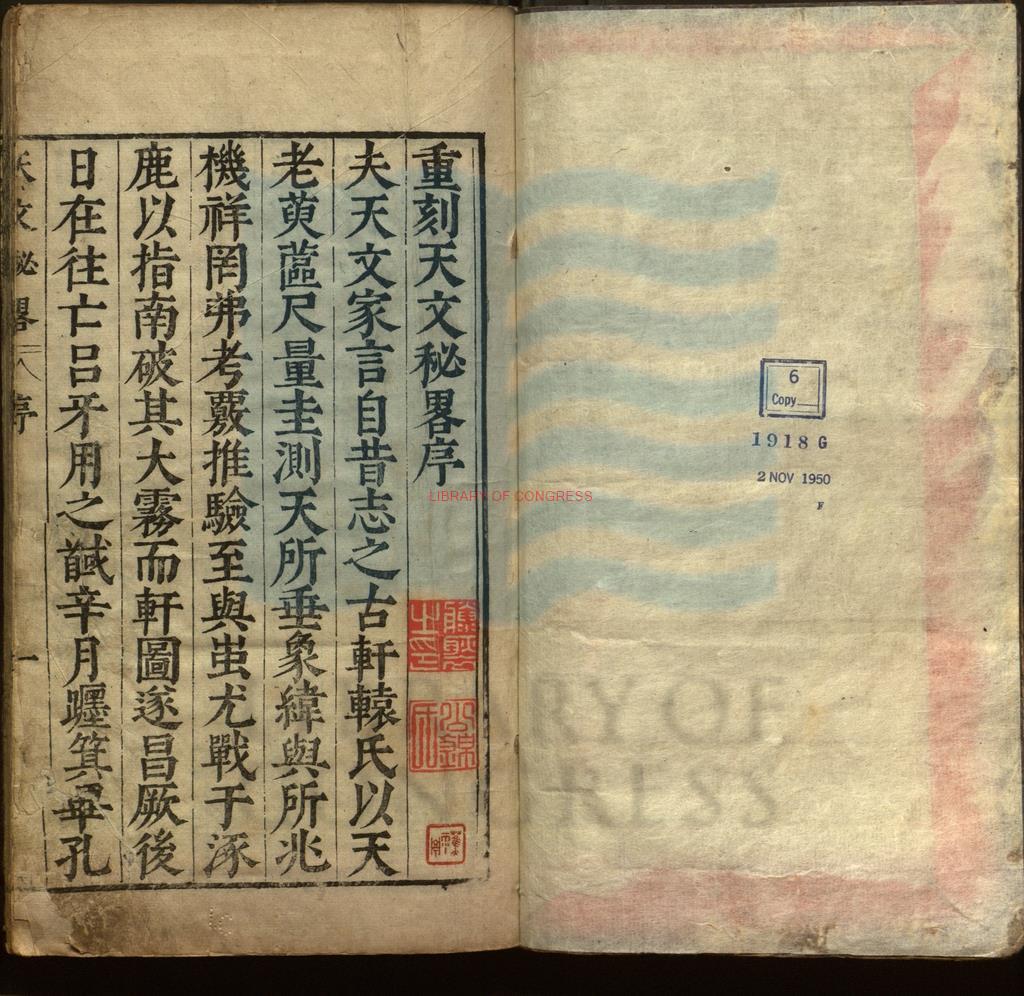 重刻天文秘畧序
夫天文家言自昔志之古軒轅氏以天
老萸蓲尺量圭測天所垂象緯與所兆
機祥罔弗考覈推驗至與蚩尤戰于涿
鹿以指南破其大霧而軒圖遂昌厥後
日在往亡吕牙用之馘辛月躔箕畢孔
天文秘畧 序 一
LIBRARY OF CONGRESS
6
Copy
1918 G
2 NOV 1950
F